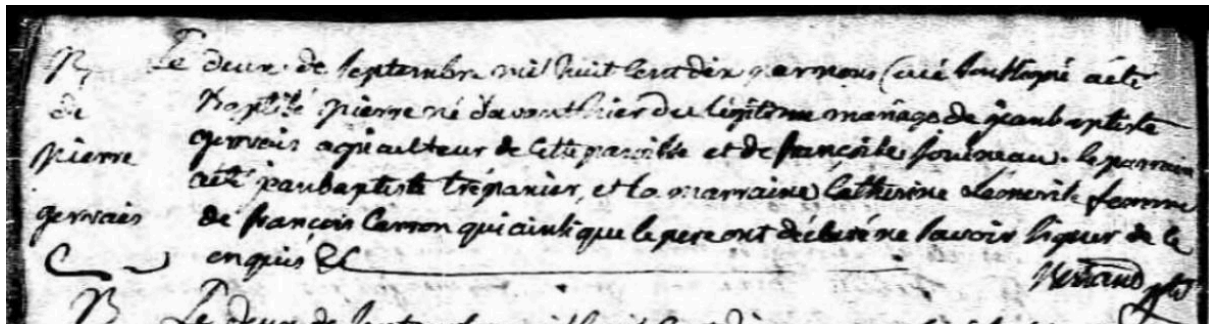 B
de
pierre
gervais
Le deux de Septembre mil huit Cent dix par nous Curé Soussigné a été
Baptisé pierre né d'avant hier du légitime mariage de jean baptiste
gervais agriculteur de cette paroisse et de françoise juineau. le parrain
a été jean baptiste trépanier, et la marraine Catherine femme
de françois Carron qui ainsi que le pere ont déclaré ne savoir signer de ce
enquis &c
ptre
B Le deux de Septembre mil huit Cent dix